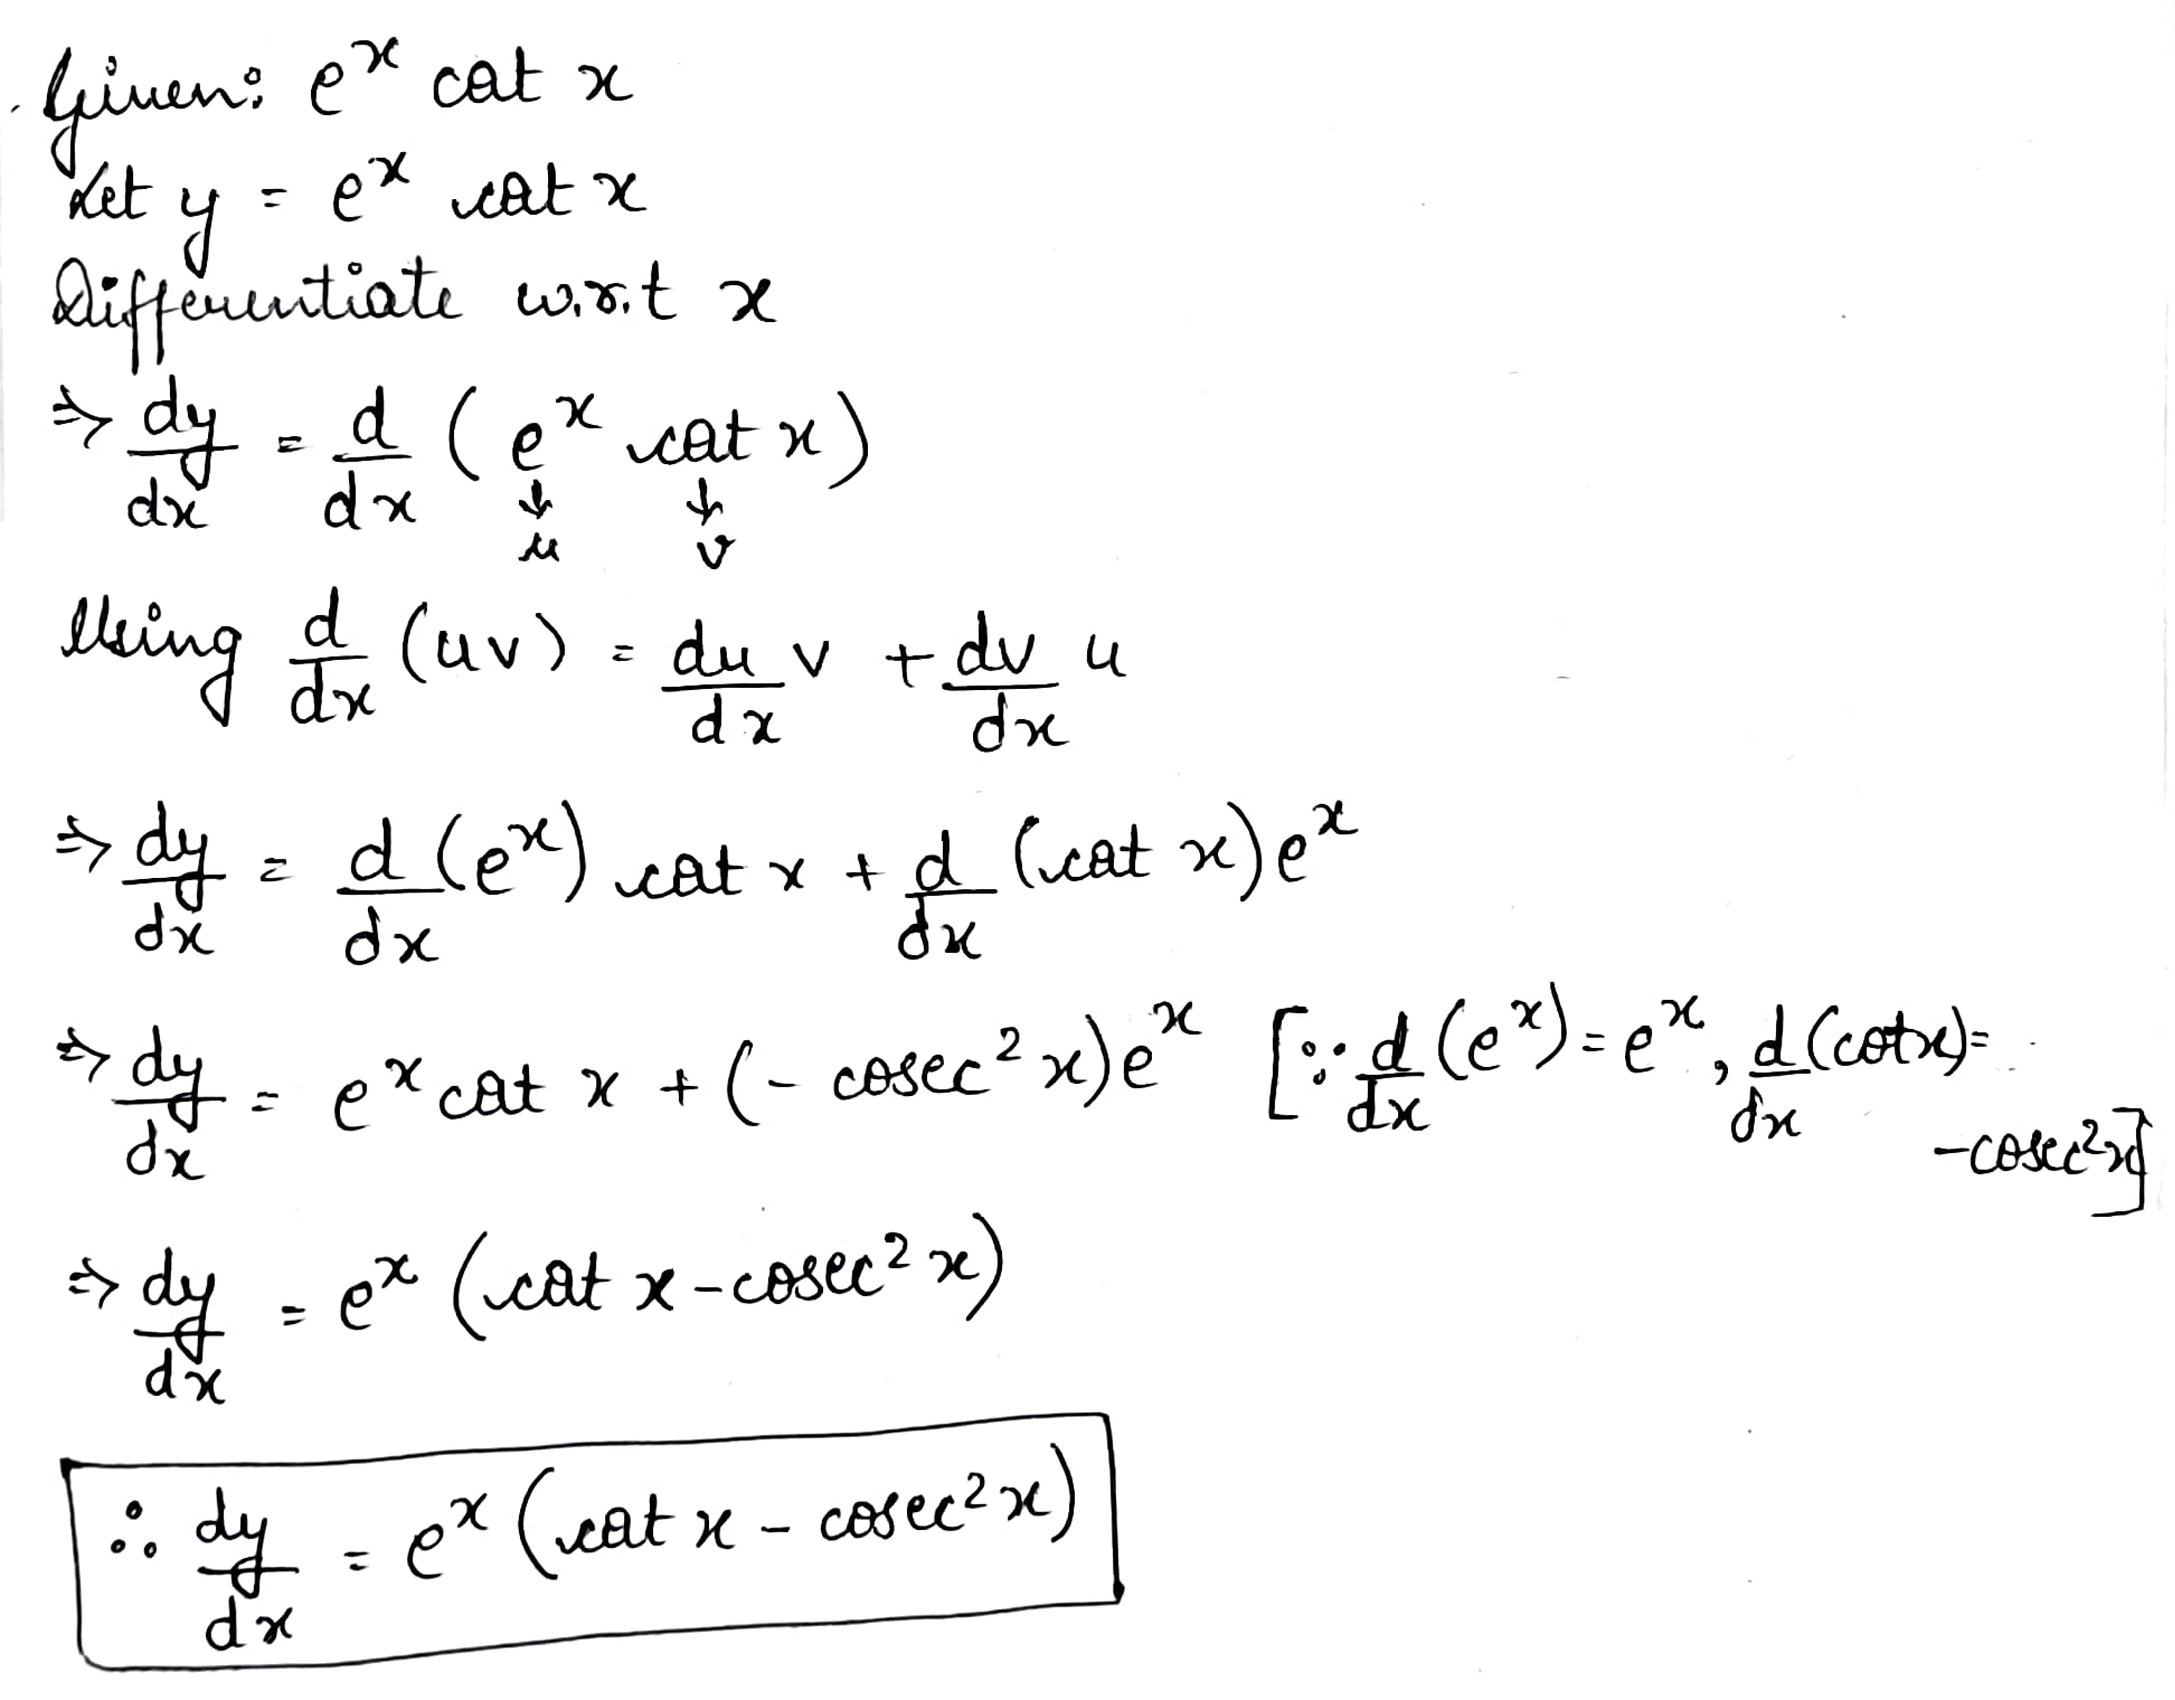 Given: e^x cot x
Let y = e^x cot x
Differentiate w.r.t x
⇒ dy/dx = d/dx (e^x cot x)
↓ ↓
u v
Using d/dx (uv) = du/dx v + dv/dx u
⇒ dy/dx = d/dx (e^x) cot x + d/dx (cot x) e^x
⇒ dy/dx = e^x cot x + (- cosec² x) e^x [∵ d/dx (e^x) = e^x, d/dx (cot x) =
-cosec² x]
⇒ dy/dx = e^x (cot x - cosec² x)
∴ dy/dx = e^x (cot x - cosec² x)